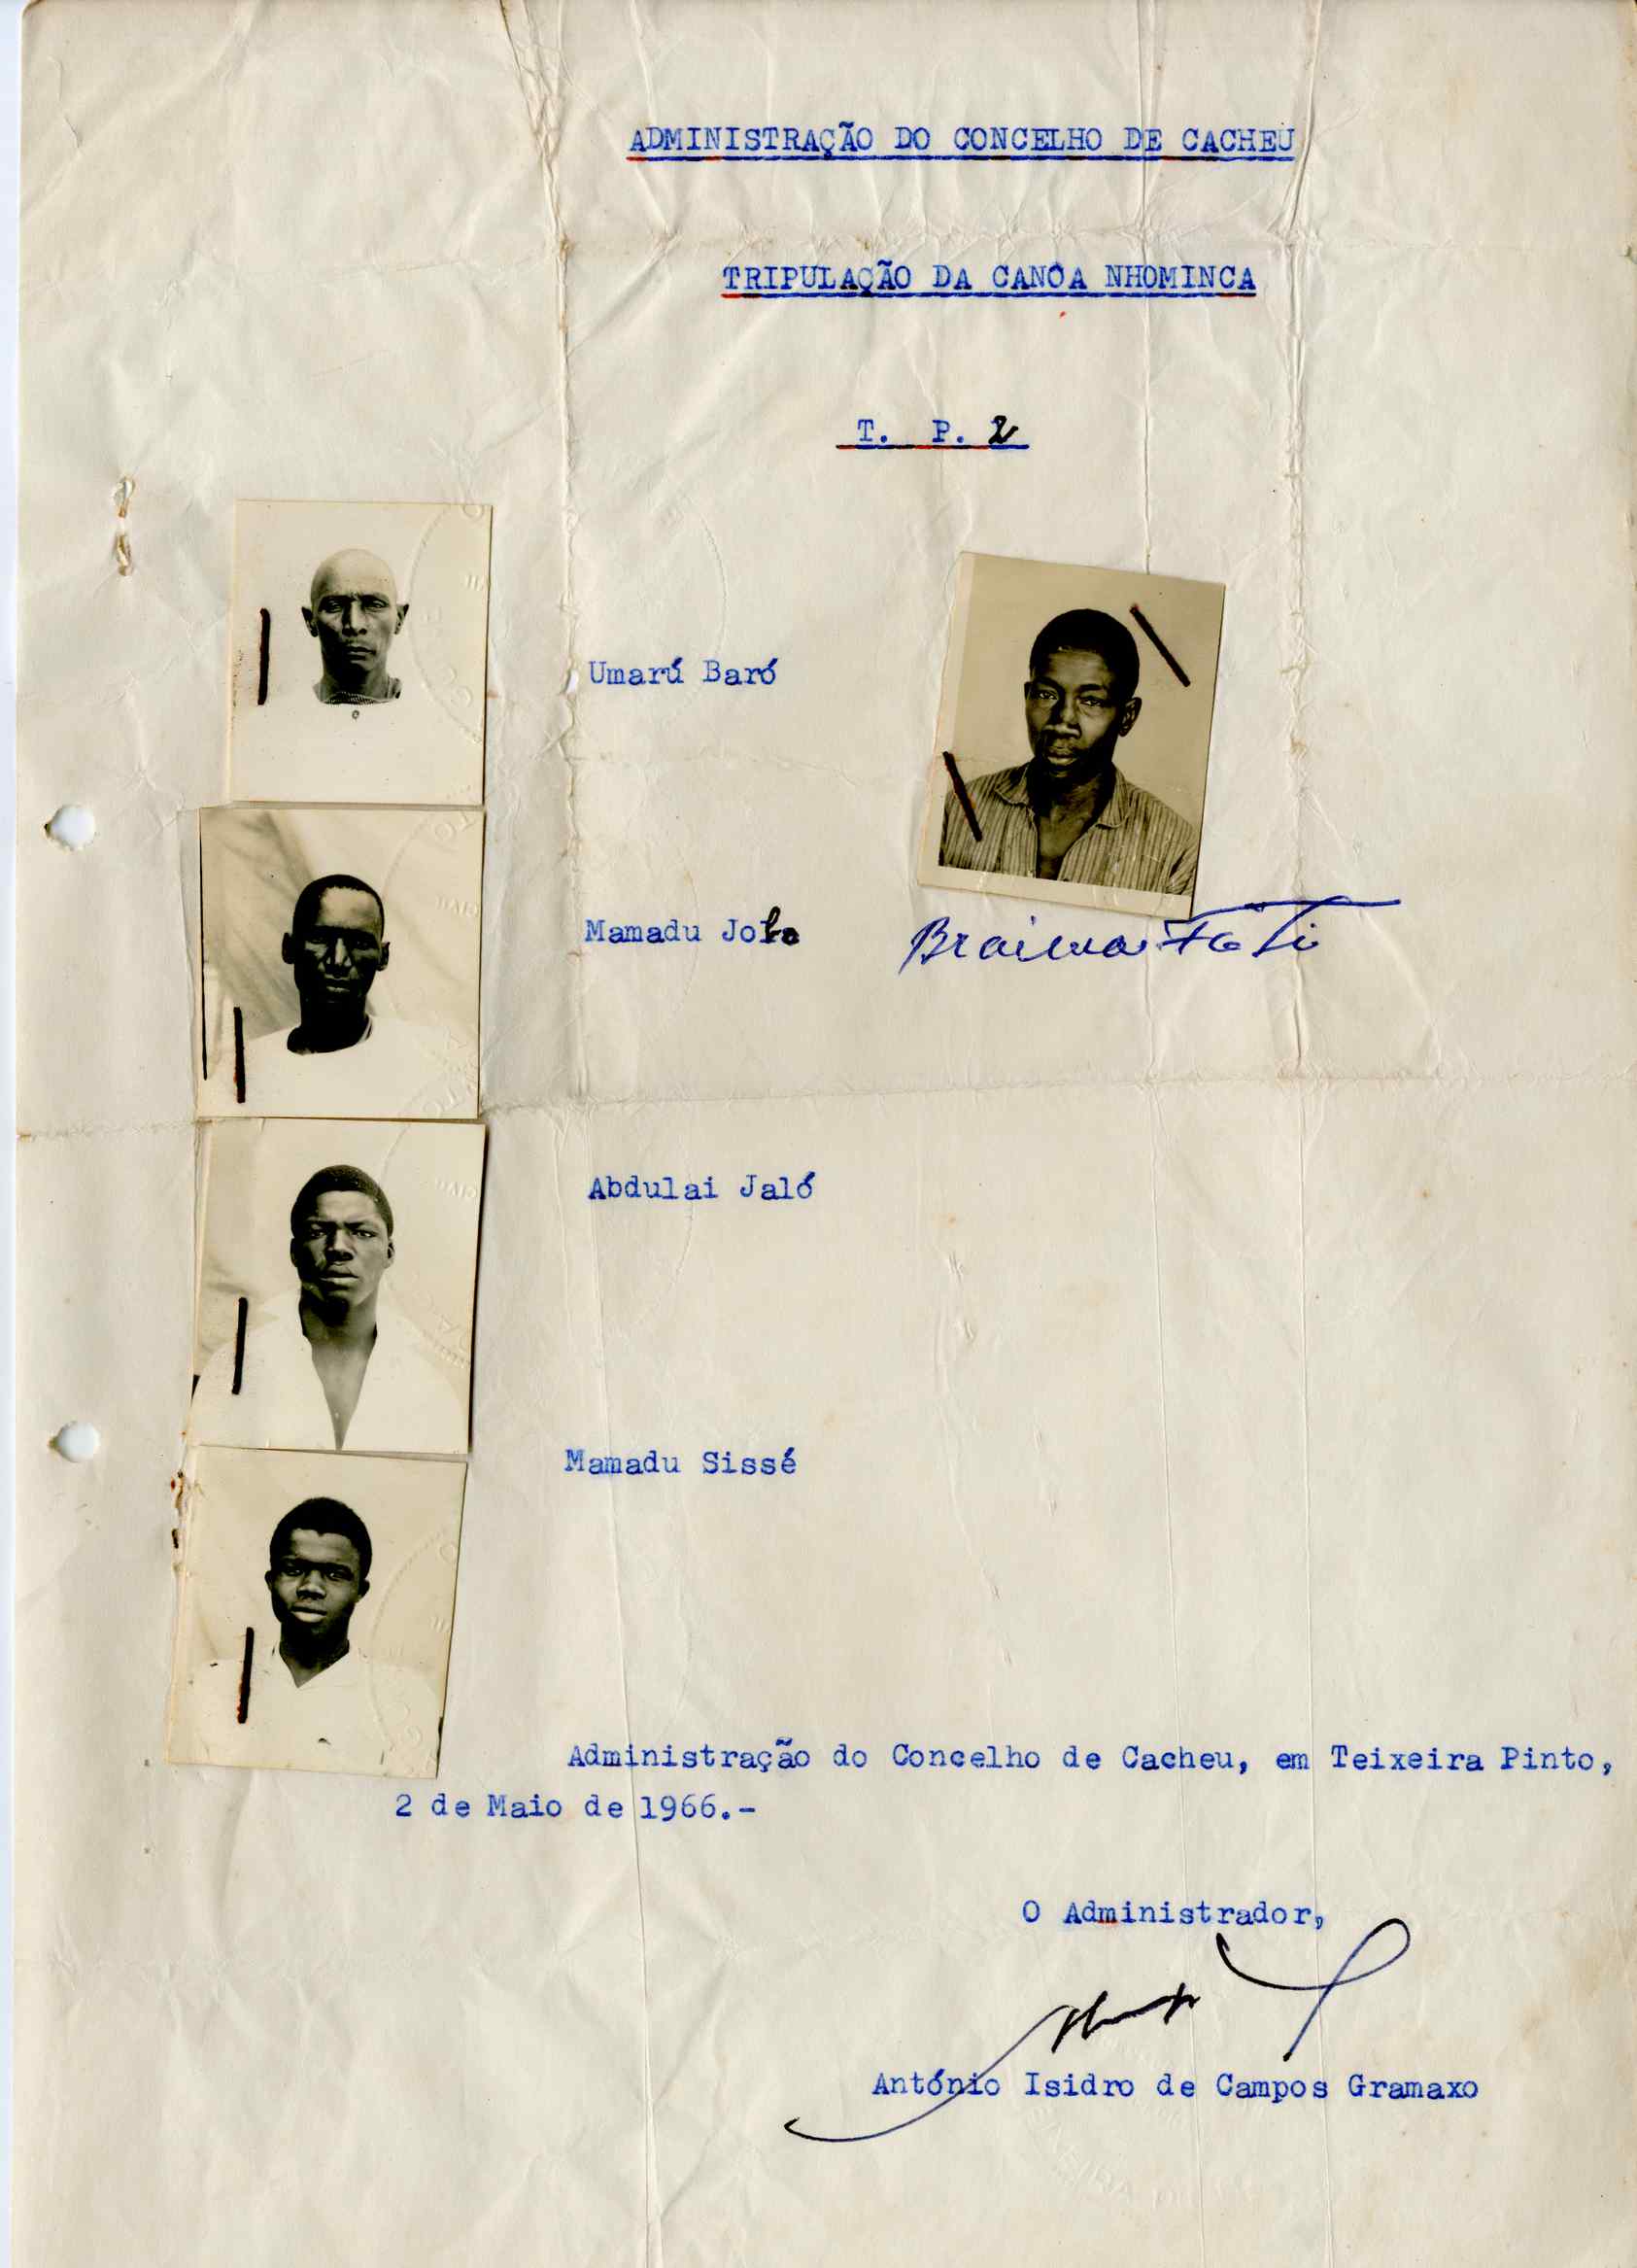 ADMINISTRAÇÃO DO CONCELHO DE CACHEU
TRIPULAÇÃO DA CANÔA NHOMINCA
T. P. 2
Umarú Baró
Mamadu Jola
Braima Fati
Abdulai Jaló
Mamadu Sissé
Administração do Concelho de Cacheu, em Teixeira Pinto,
2 de Maio de 1966.-
O Administrador,
António Isidro de Campos Gramaxo